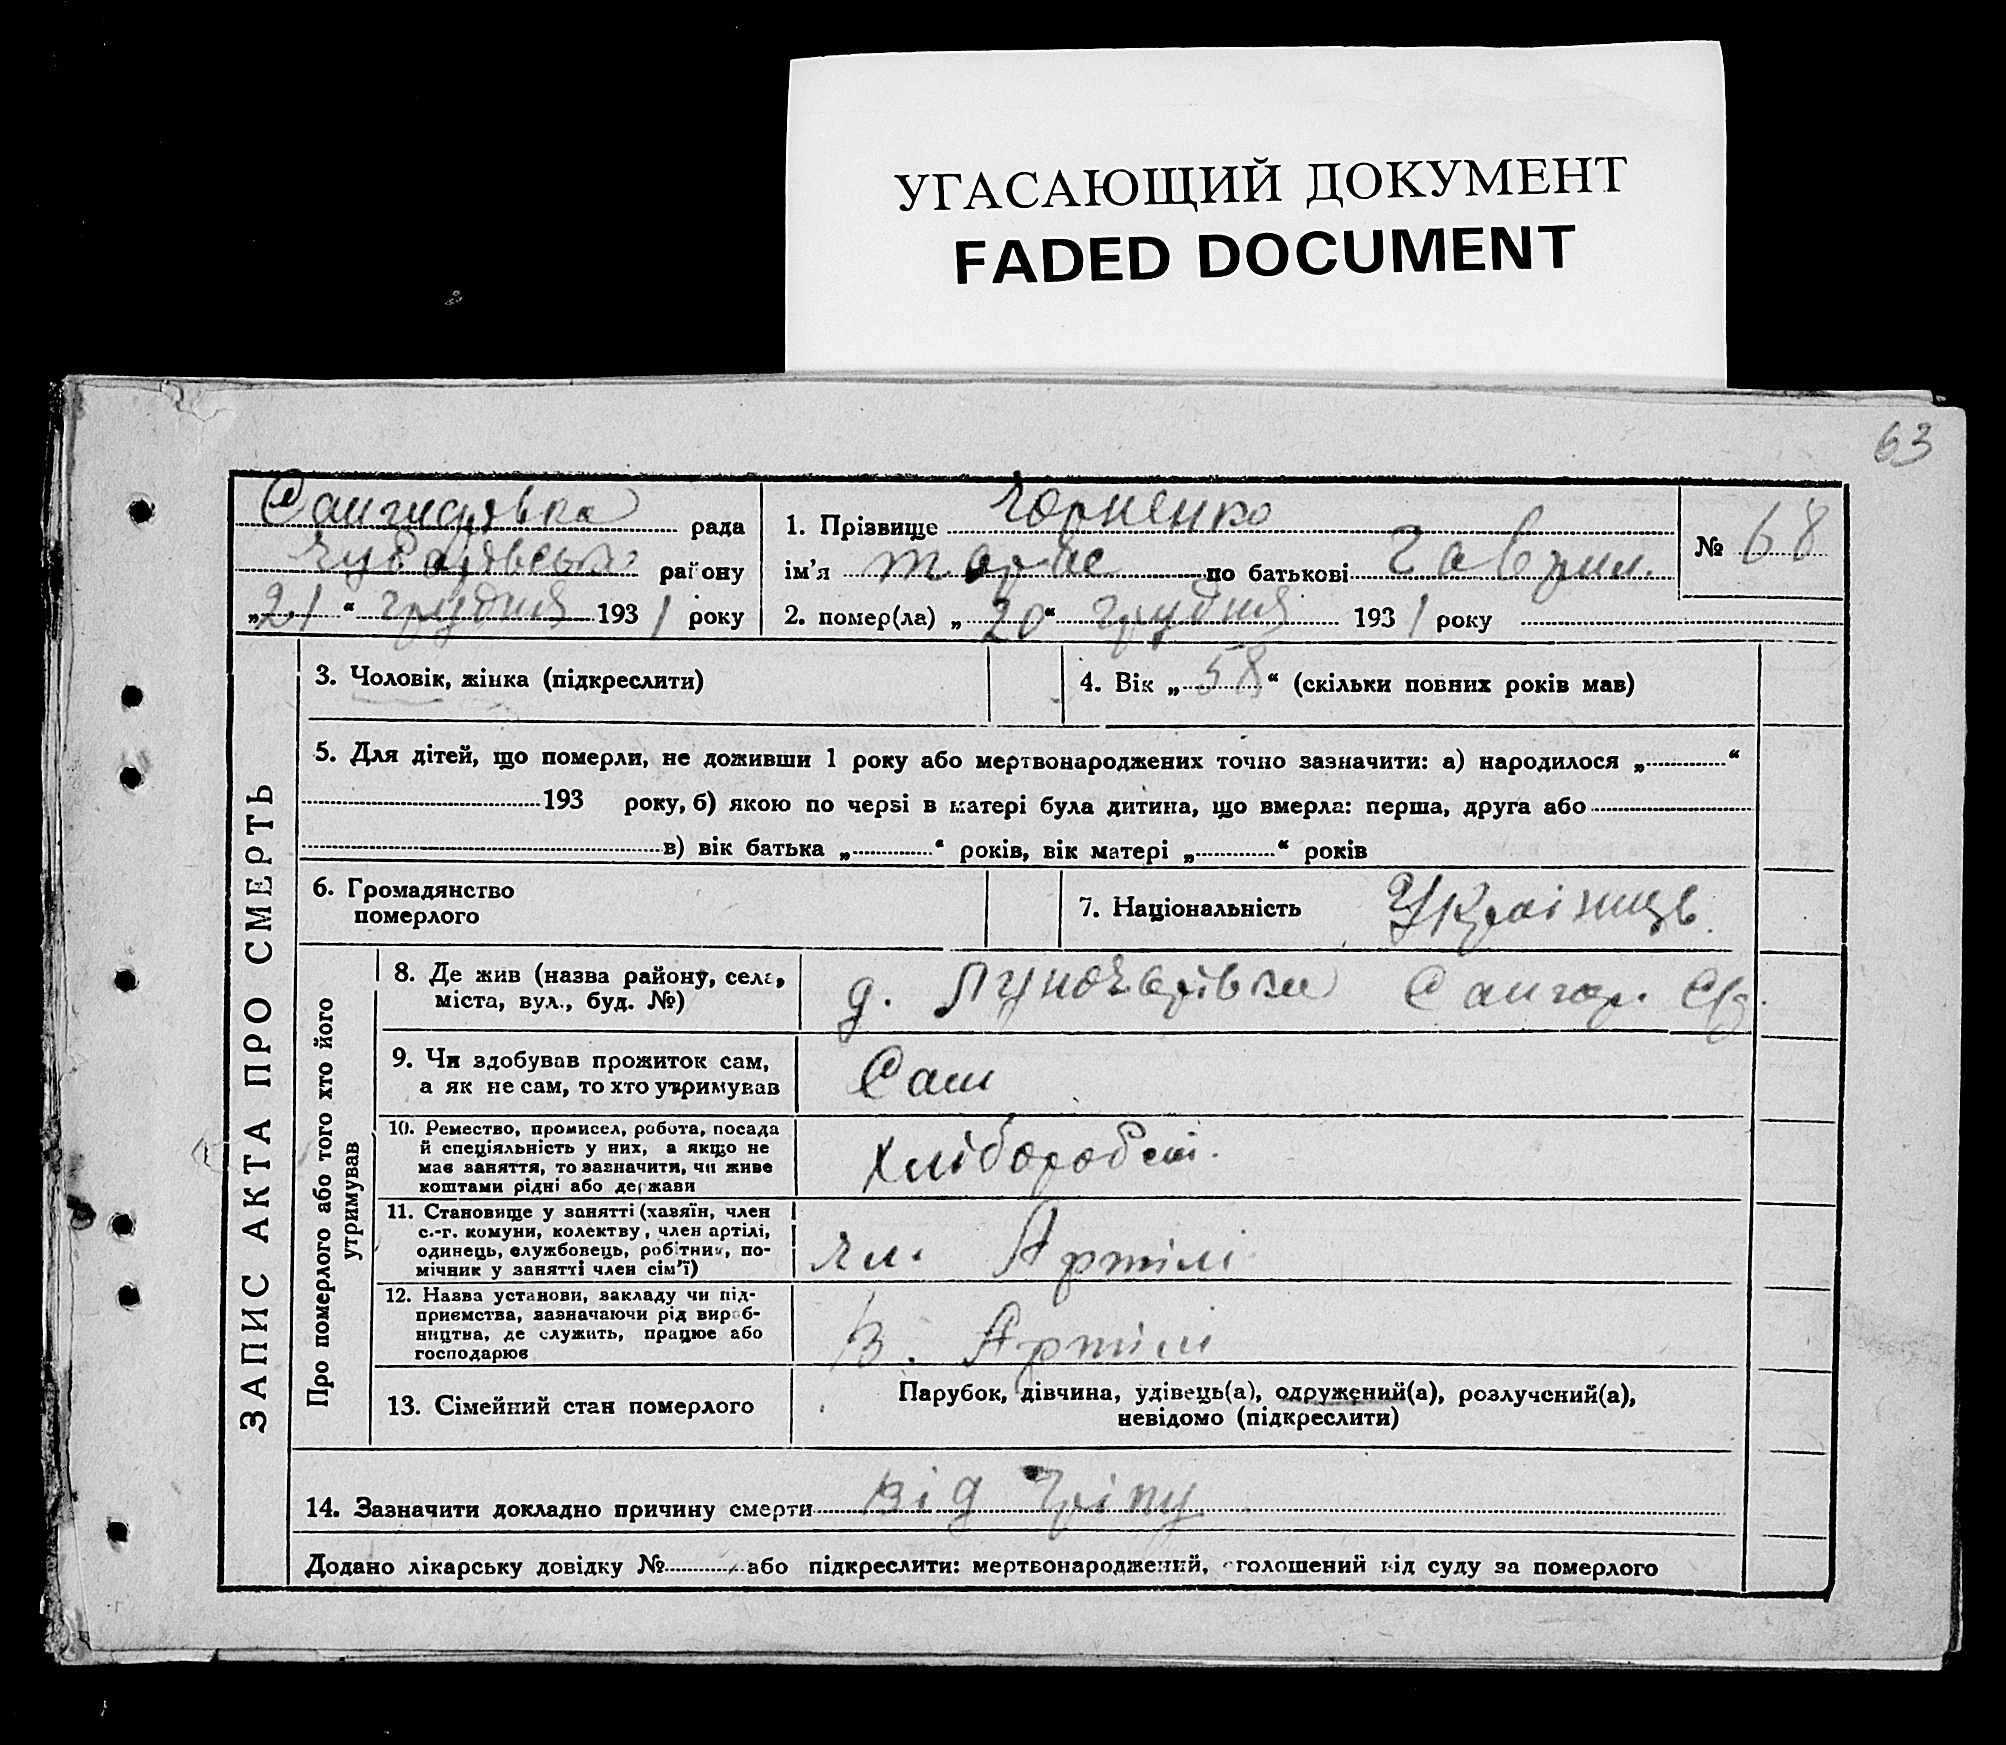 УГАСАЮЩИЙ ДОКУМЕНТ
FADED DOCUMENT
63
рада
району
„21“ грудня 1931 року
1. Прізвище Чорненко
ім'я Тарас по батькові Гаврил.
2. помер(ла) „20“ грудня 1931 року
№ 68
ЗАПИС АКТА ПРО СМЕРТЬ
3. Чоловік, жінка (підкреслити)
4. Вік „58“ (скільки повних років мав)
5. Для дітей, що померли, не доживши 1 року або мертвонароджених точно зазначити: а) народилося „ “
193 року, б) якою по черзі в матері була дитина, що вмерла: перша, друга або
в) вік батька „ “ років, вік матері „ “ років
6. Громадянство
померлого
7. Національність Українець.
Про померлого або того хто його
утримував
8. Де жив (назва району, села,
міста, вул., буд. №)
д.
9. Чи здобував прожиток сам,
а як не сам, то хто утримував
Сам
10. Ремество, промисел, робота, посада
й спеціяльність у них, а якщо не
мав заняття, то зазначити, чи живе
коштами рідні або держави
11. Становище у занятті (хазяїн, член
с.-г. комуни, колектву, член артілі,
одинець, службовець, робітник, по-
мічник у занятті член сім'ї)
чл. Артілі
12. Назва установи, закладу чи під-
приємства, зазначаючи рід вироб-
ництва, де служить, працює або
господарює
В. Артілі
13. Сімейний стан померлого
Парубок, дівчина, удівець(а), одружений(а), розлучений(а),
невідомо (підкреслити)
14. Зазначити докладно причину смерти від гріпу
Додано лікарську довідку № або підкреслити: мертвонароджений, оголошений від суду за померлого